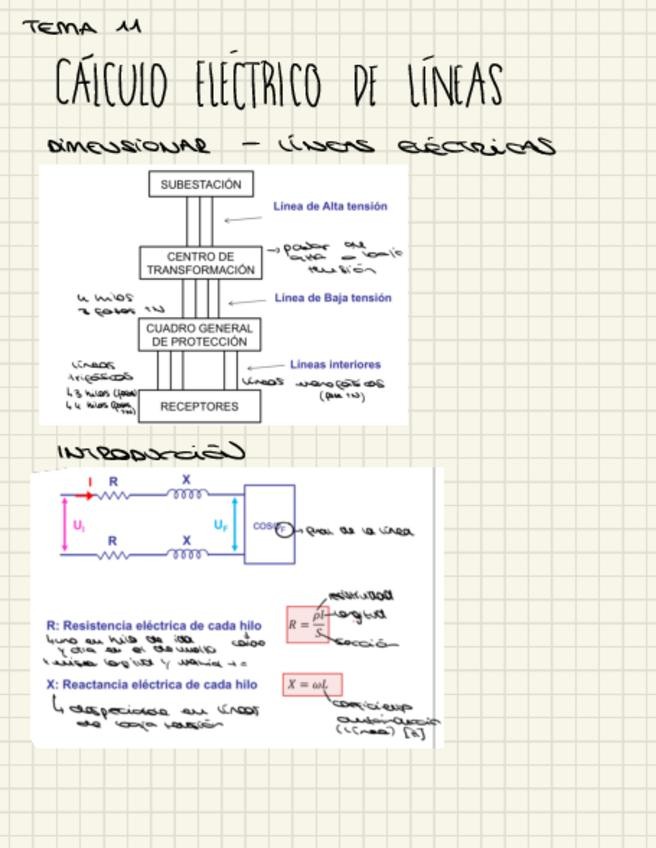 TEMA 11
CÁLCULO ELÉCTRICO DE LÍNEAS
DIMENSIONAR - LÍNEAS ELÉCTRICAS
SUBESTACIÓN
Línea de Alta tensión
CENTRO DE
TRANSFORMACIÓN
→ pasar de
alta a baja
tensión
4 hilos
3 fases 1N
Línea de Baja tensión
CUADRO GENERAL
DE PROTECCIÓN
Líneas interiores
líneas
trifásicas
↳ 3 hilos
↳ 4 hilos
líneas monofásicas
RECEPTORES
INTRODUCCIÓN
I R X
U_I
U_F
COSφ_F
→ final de la línea
R X
R: Resistencia eléctrica de cada hilo
R = ρl/S
resistividad
longitud
sección
↳ uno en hilo de ida
y otro en el de vuelta
X: Reactancia eléctrica de cada hilo
X = ωL
↳ despreciable en líneas
de baja tensión
coeficiente
autoinducción